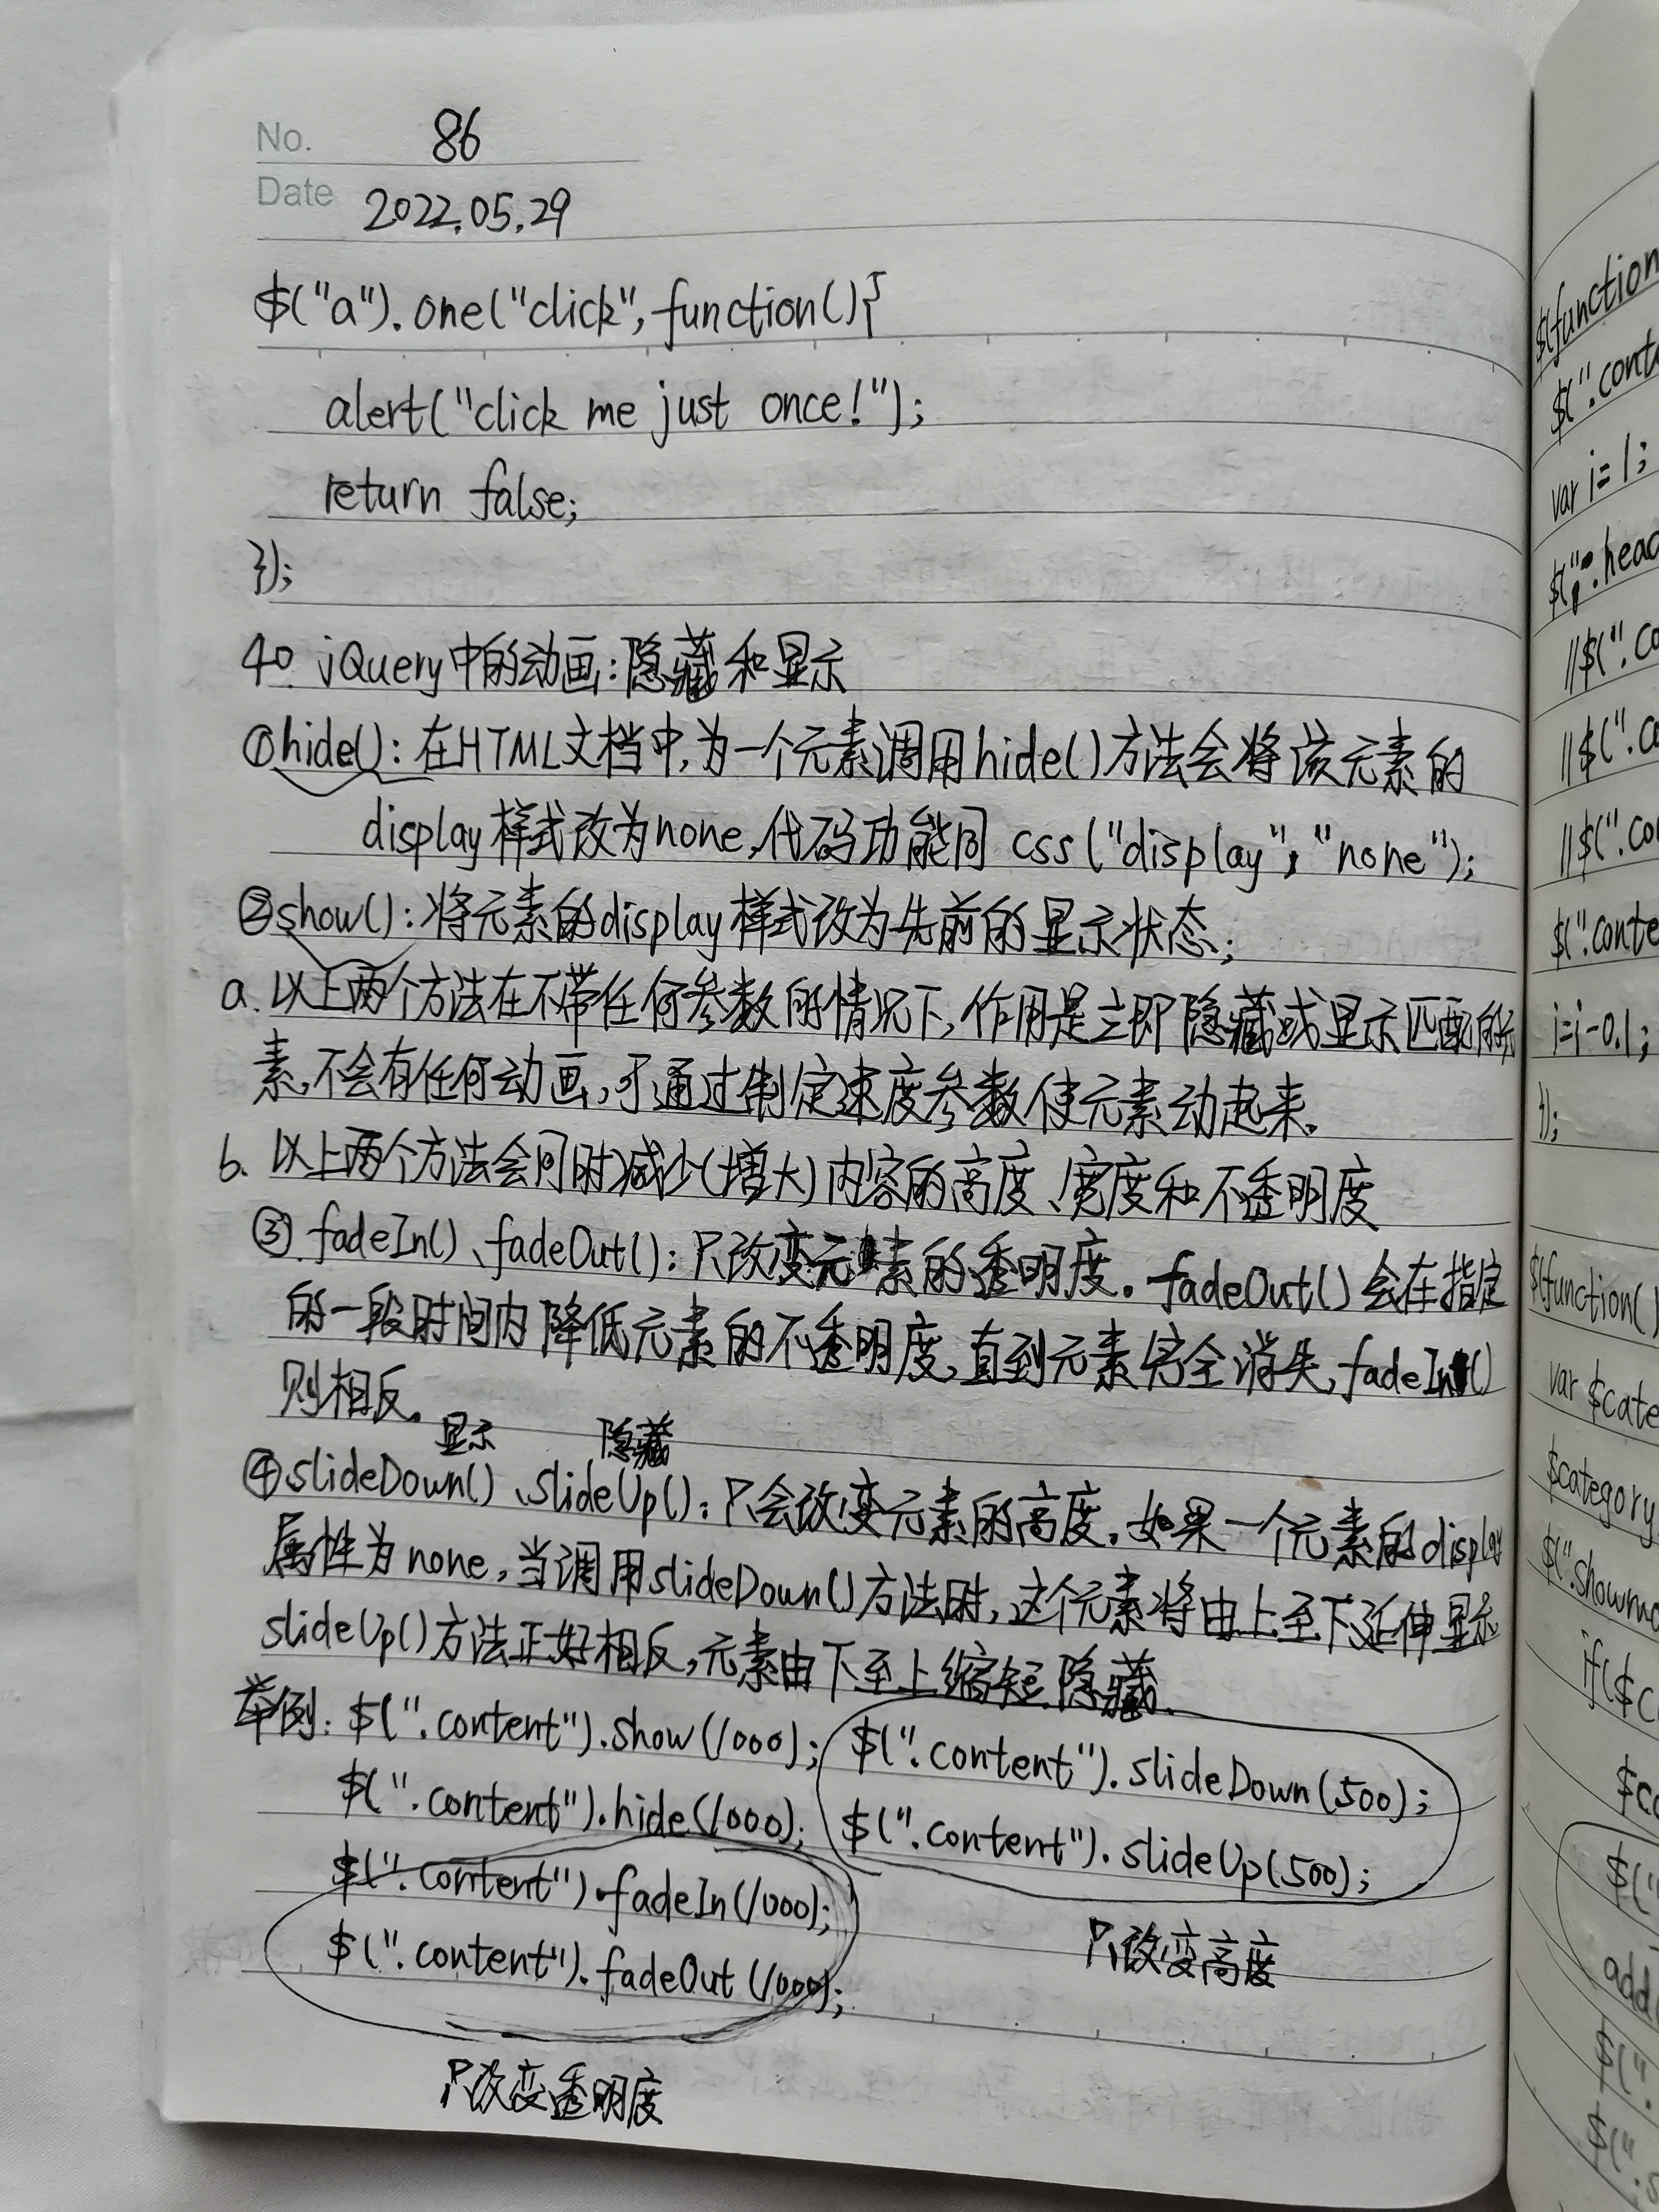 No. 86
Date 2022.05.29
$("a").one("click",function(){
alert("click me just once!");
return false;
});
40. jQuery中的动画:隐藏和显示
①hide():在HTML文档中,为一个元素调用hide()方法会将该元素的
display样式改为none,代码功能同 css("display","none");
②show():将元素的display样式改为先前的显示状态;
a.以上两个方法在不带任何参数的情况下,作用是立即隐藏或显示匹配的元
素,不会有任何动画,可通过制定速度参数使元素动起来.
b.以上两个方法会同时减少(增大)内容的高度、宽度和不透明度
③fadeIn()、fadeOut():只改变元素的透明度。fadeOut()会在指定
的一段时间内降低元素的不透明度,直到元素完全消失,fadeIn()
则相反。
显示 隐藏
④slideDown()、slideUp():只会改变元素的高度.如果一个元素的display
属性为none,当调用slideDown()方法时,这个元素将由上至下延伸显示
slideUp()方法正好相反,元素由下至上缩短隐藏.
举例:$(".content").show(1000); $(".content").slideDown(500);
$(".content").hide(1000); $(".content").slideUp(500);
$(".content").fadeIn(1000);
$(".content").fadeOut(1000);
只改变高度
只改变透明度
$(function
$(".cont
var i=1;
$(".head
//$(".co
//$(".co
//$(".co
$(".conte
i=i-0.1;
});
$(function()
var $cate
$category
$(".showmo
if($c
$c
$("
add
$(".
$("